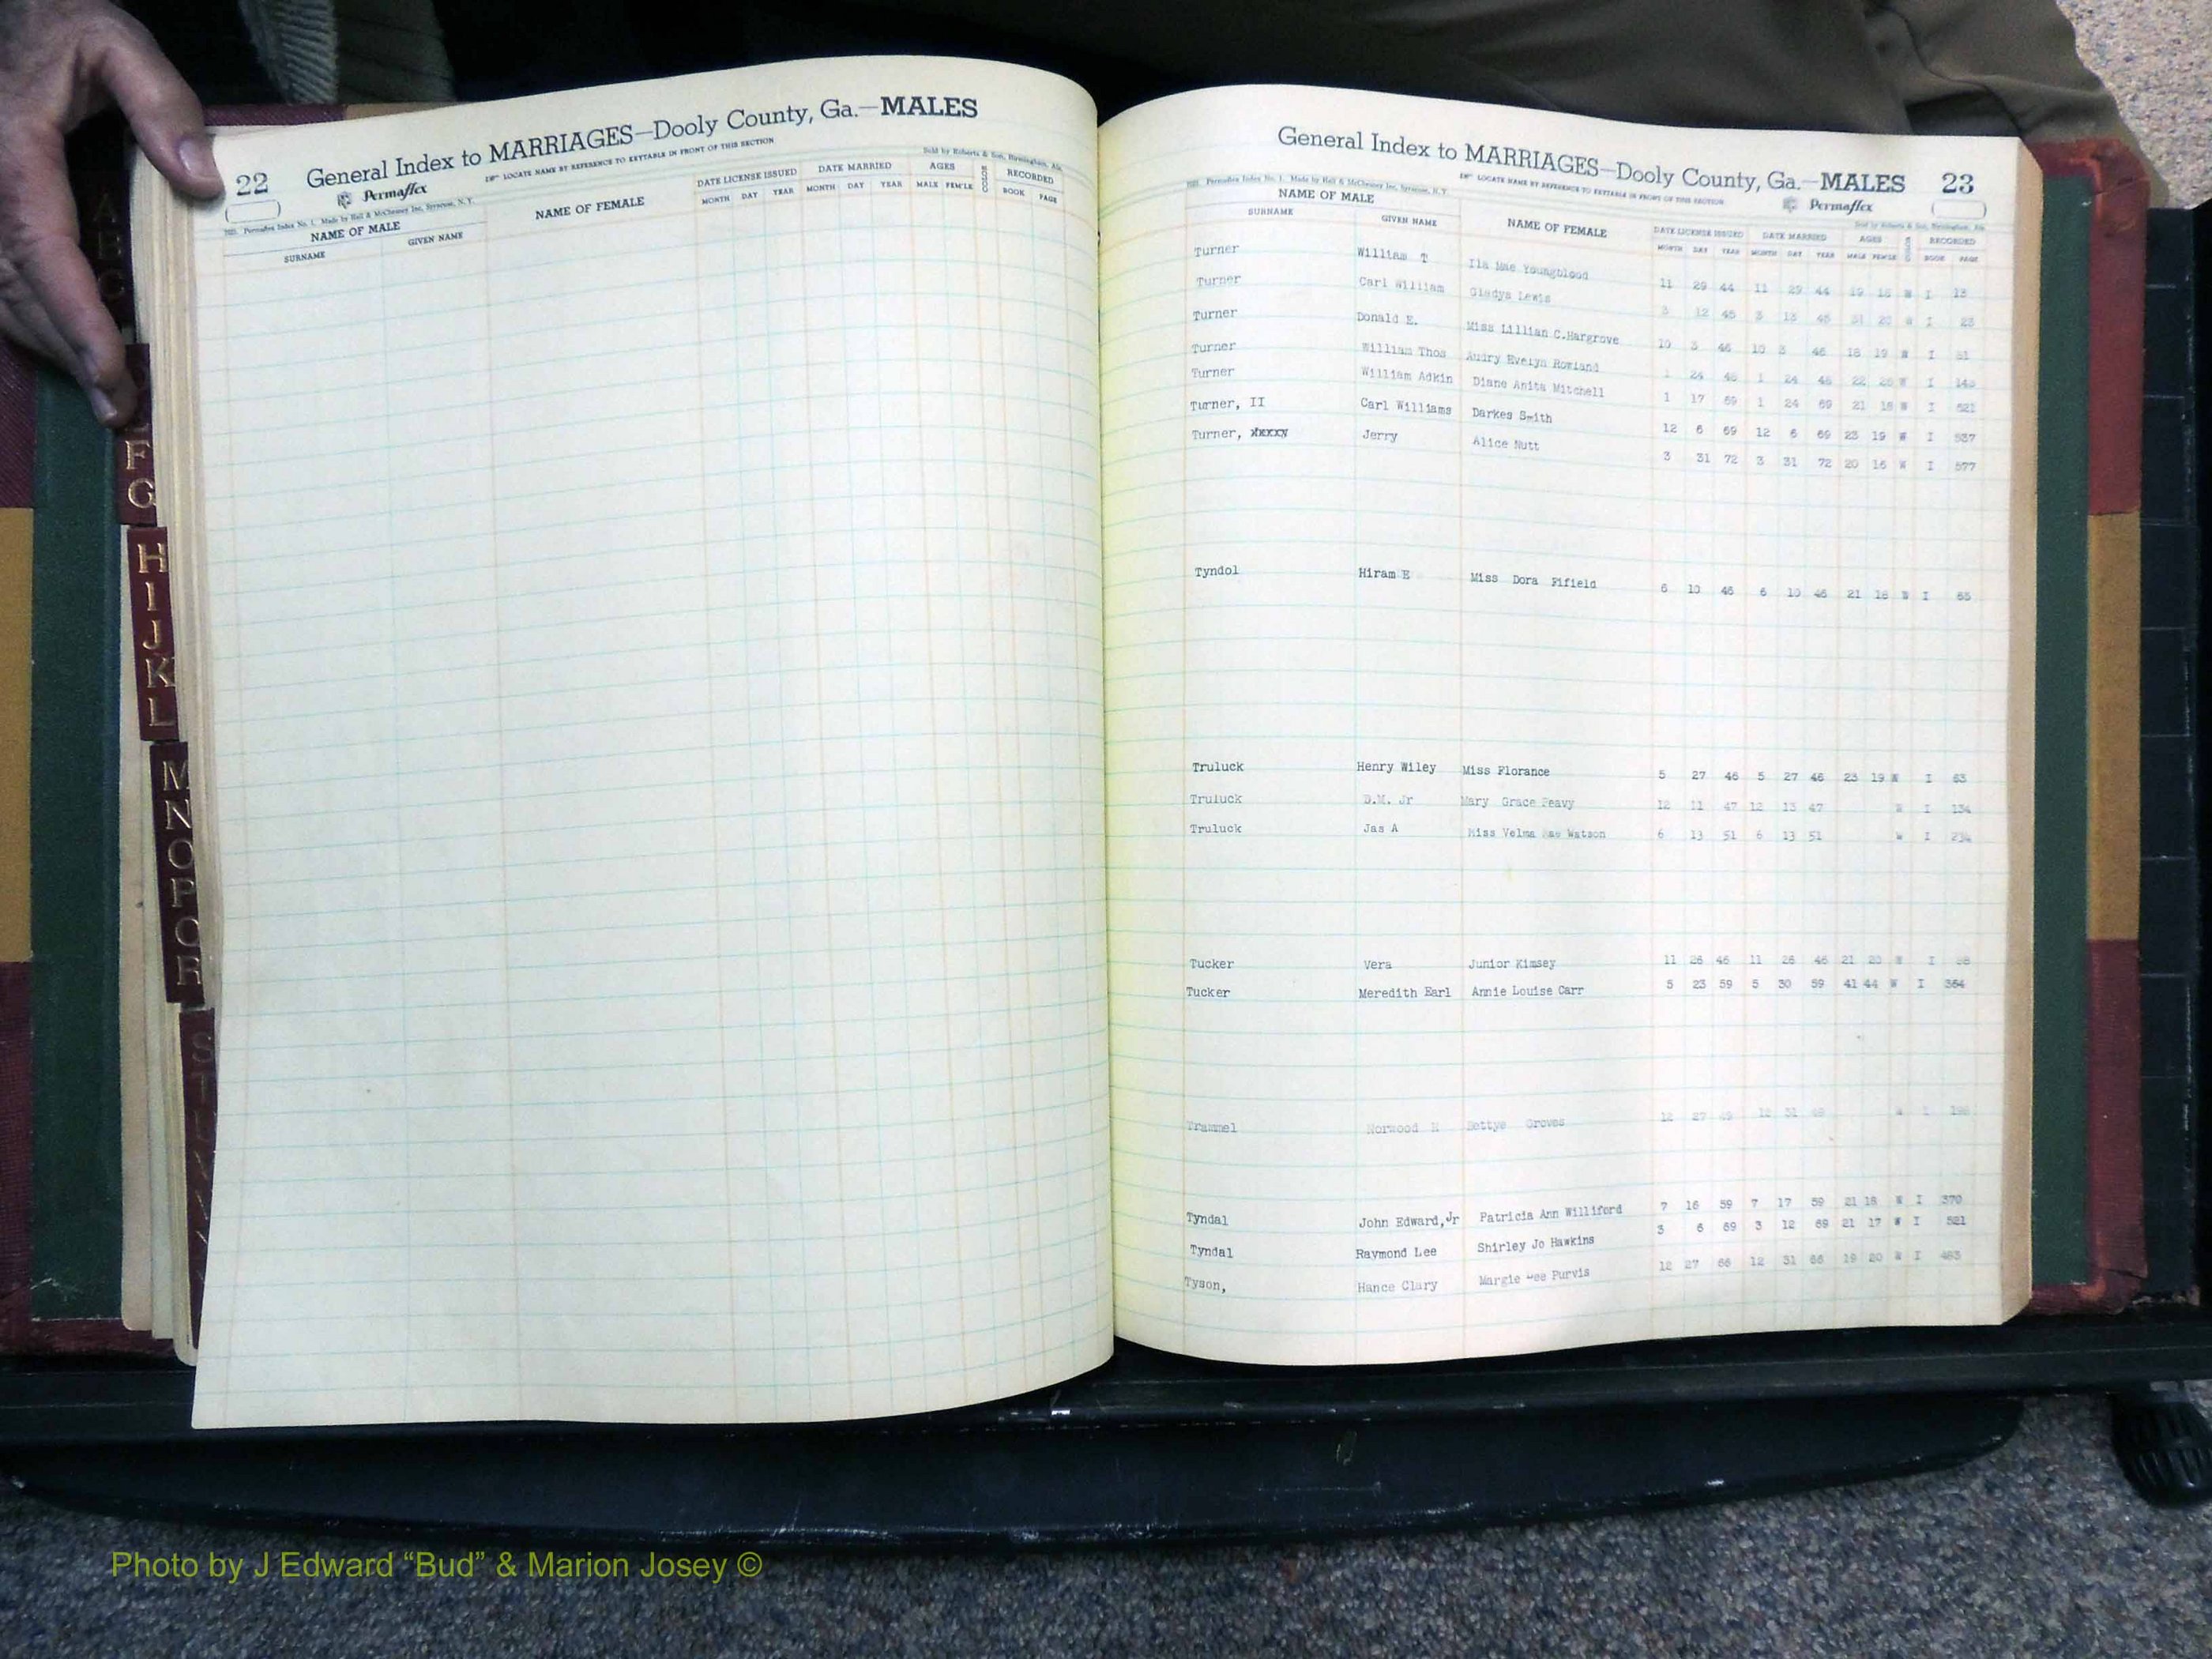 22
General Index to MARRIAGES—Dooly County, Ga.—MALES
LOCATE NAME BY REFERENCE TO KEYTABLE IN FRONT OF THIS SECTION
Permaflex
Permaflex Index No. 1. Made by Hall & McChesney Inc, Syracuse, N. Y.
Sold by Roberts & Son, Birmingham, Ala.
NAME OF MALE NAME OF FEMALE DATE LICENSE ISSUED DATE MARRIED AGES COLOR RECORDED
SURNAME GIVEN NAME MONTH DAY YEAR MONTH DAY YEAR MALE FEM'LE BOOK PAGE
General Index to MARRIAGES—Dooly County, Ga.—MALES 23
LOCATE NAME BY REFERENCE TO KEYTABLE IN FRONT OF THIS SECTION
Permaflex
Permaflex Index No. 1. Made by Hall & McChesney Inc, Syracuse, N. Y.
Sold by Roberts & Son, Birmingham, Ala.
NAME OF MALE NAME OF FEMALE DATE LICENSE ISSUED DATE MARRIED AGES COLOR RECORDED
SURNAME GIVEN NAME MONTH DAY YEAR MONTH DAY YEAR MALE FEM'LE BOOK PAGE
Turner William T Ila Mae Youngblood 11 29 44 11 29 44 19 16 W I 13
Turner Carl William Gladys Lewis 3 12 45 3 13 45 20 I 23
Turner Donald E. Miss Lillian C.Hargrove 10 3 46 10 3 46 18 19 W I
Turner William Thos Audry Evelyn Rowland 1 24 1 24 22 W I
Turner William Adkin Diane Anita Mitchell 1 17 69 1 24 69 21 18 W I 521
Turner, II Carl Williams Darkes Smith 12 6 69 12 6 69 23 19 W I 537
Turner, Jerry Alice Nutt 3 31 72 3 31 72 20 16 W I 577
Tyndol Hiram E Miss Dora Fifield 6 10 46 6 10 46 21 18 W I 65
Truluck Henry Wiley Miss Florance 5 27 46 5 27 46 23 19 W I 63
Truluck D.M. Jr Mary Grace Peavy 12 11 47 12 13 47 W I 134
Truluck Jas A Miss Velma Mae Watson 6 13 51 6 13 51 W I 234
Tucker Vera Junior Kimsey 11 26 46 11 26 46 21 W I
Tucker Meredith Earl Annie Louise Carr 5 23 59 5 30 59 41 44 W I 364
Trammel Norwood Bettye Groves 12 27 49 12 31 49
Tyndal John Edward, Jr Patricia Ann Williford 7 16 59 7 17 59 21 18 W I 370
Tyndal Raymond Lee Shirley Jo Hawkins 3 6 69 3 12 69 21 17 W I 521
Tyson, Hance Clary Margie Purvis 12 27 66 12 31 66 19 20 W I
F
G
H
I
J
K
L
M
N
O
P
Q
R
S
T
Photo by J Edward “Bud” & Marion Josey ©